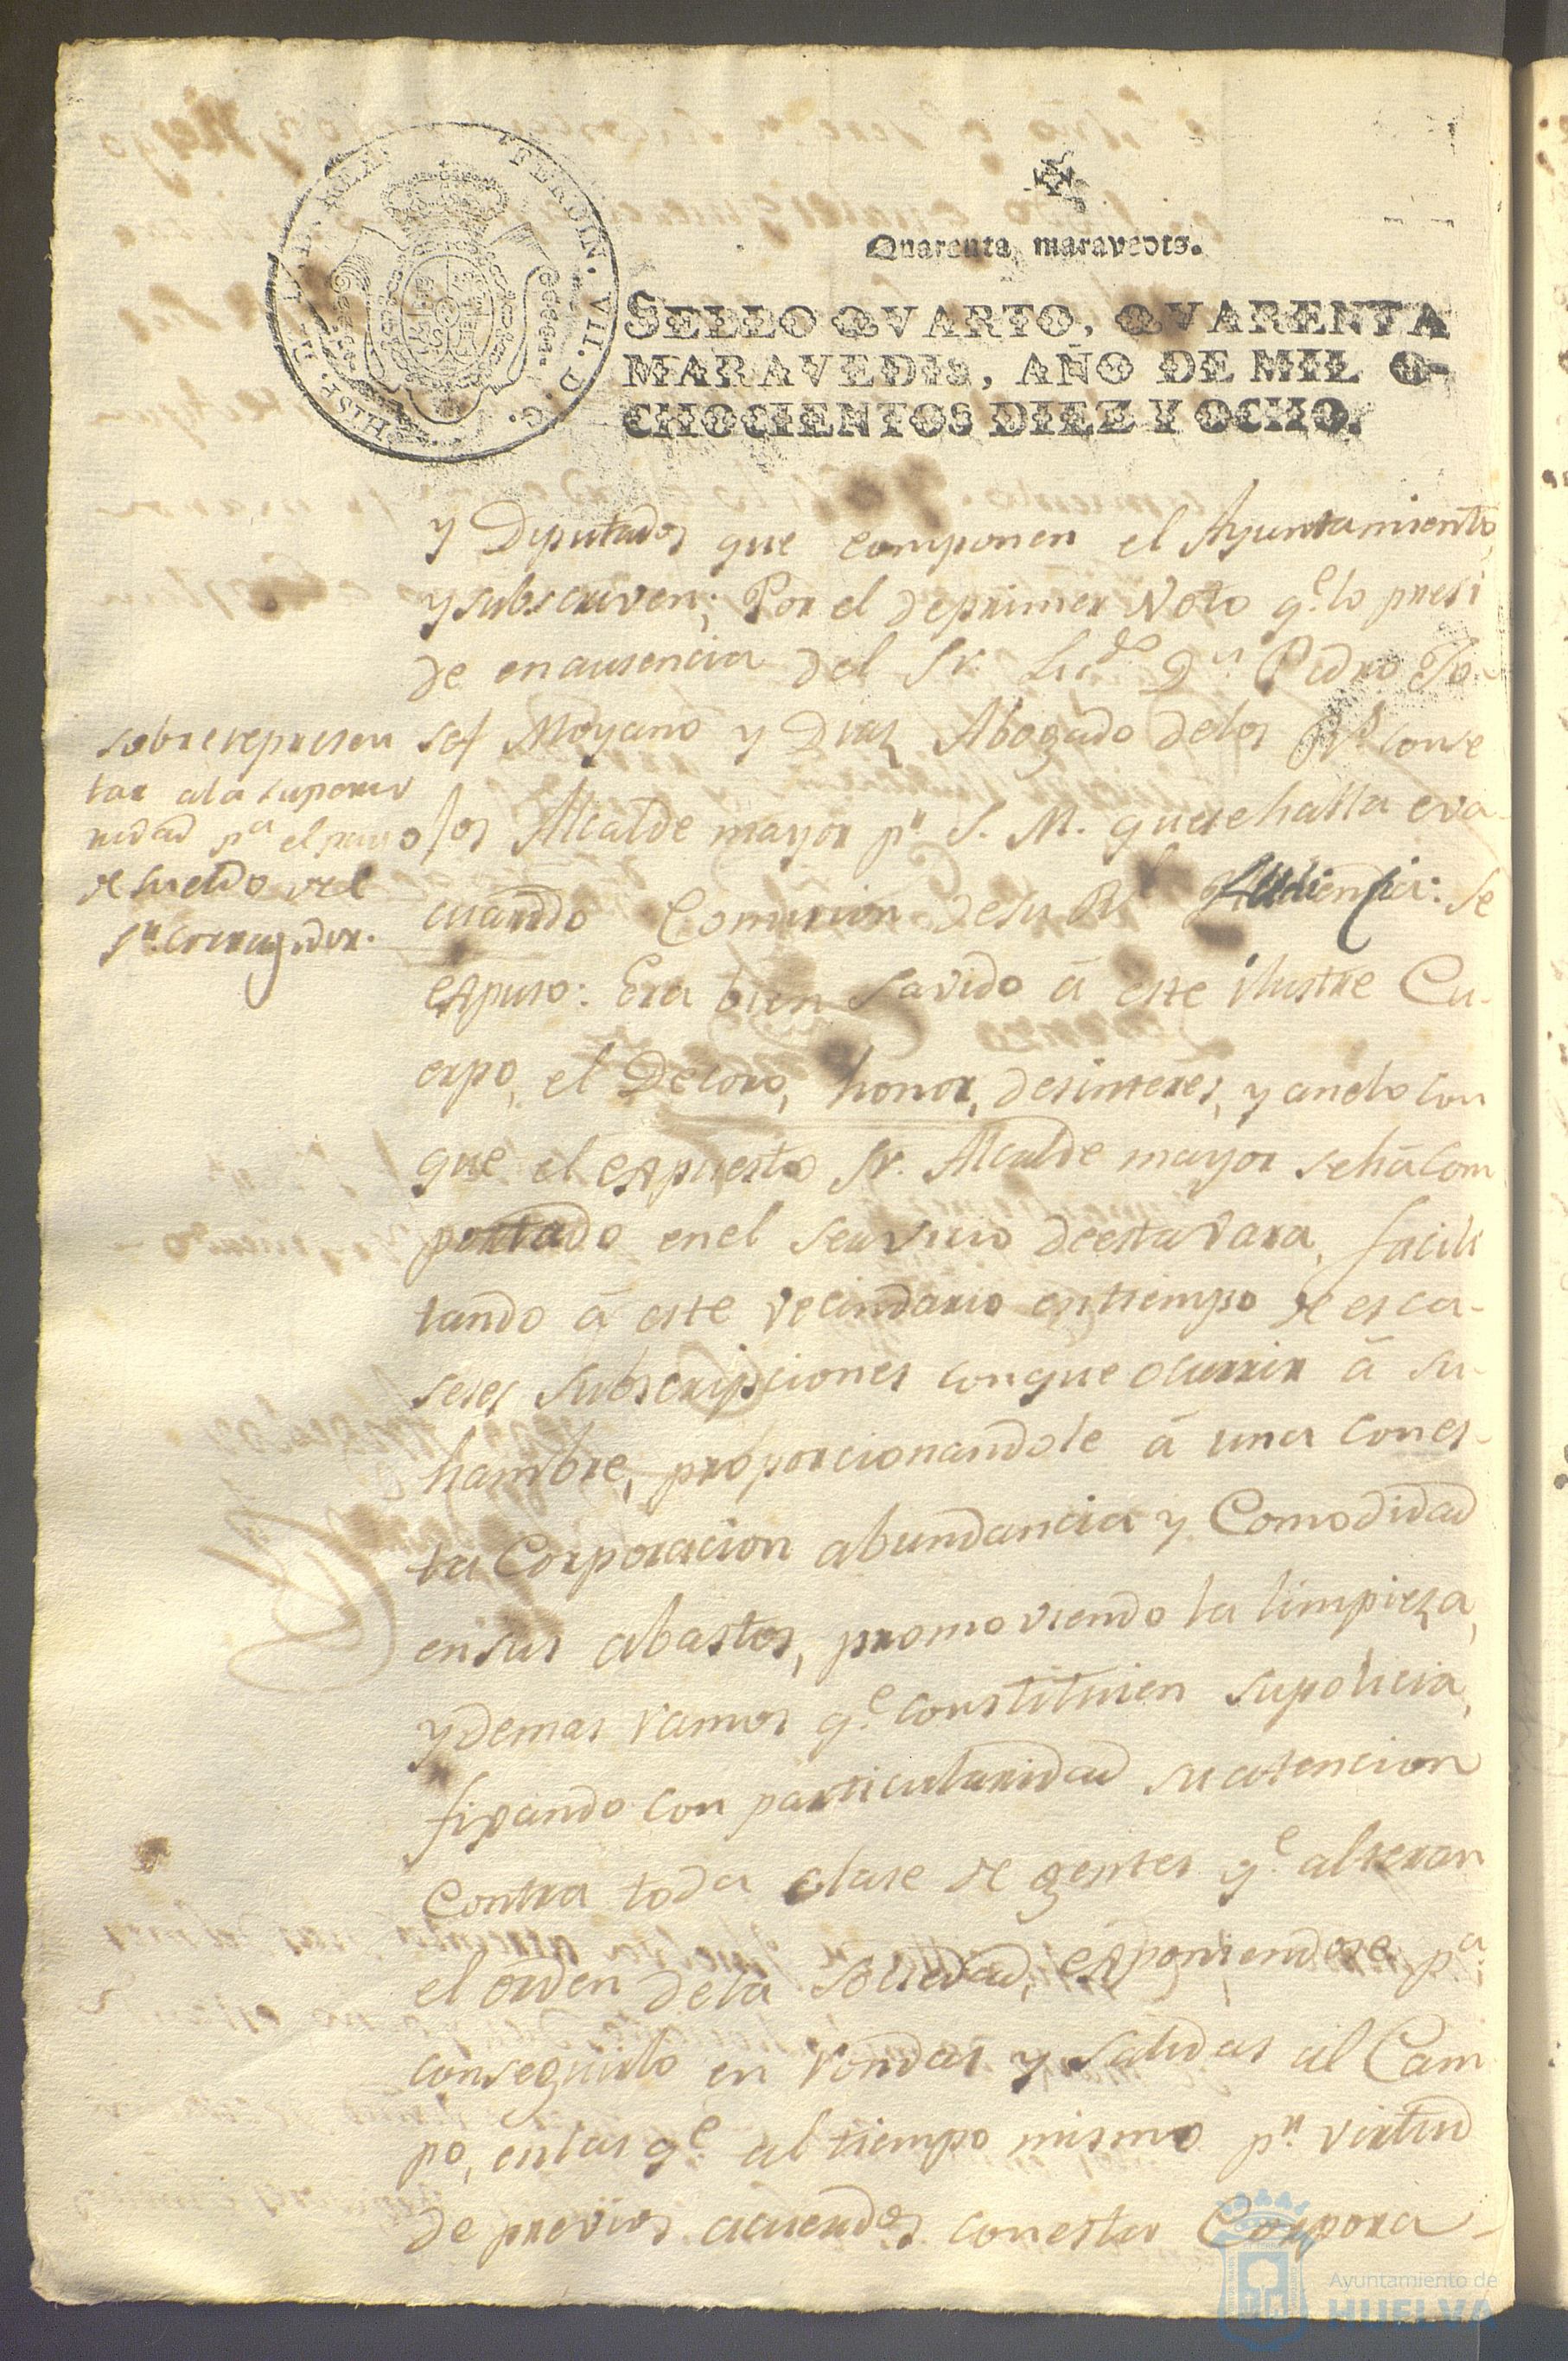 HISP. D. I. P. REX. FERDIN. VII. D. G.
Quarenta maravedis.
SELLO QVARTO, QVARENTA
MARAVEDIS, AÑO DE MIL O-
CHOCIENTOS DIEZ Y OCHO.
y Diputados que componen el Ayuntamiento,
y subscriven; Por el de primer Voto q.e lo presi
de en ausencia del Sr. Lic.do D.n Pedro Jo-
sef Moyano y Diaz Abogado de los R.s conse
jos Alcalde mayor p.r S. M. que se halla eva-
cuando Comision de su R.l Audiencia: se
expuso: Era bien savido á este ilustre Cu-
erpo, el Decoro, honor, desinteres, y anelo con
que el expuesto Sr. Alcalde mayor se há com
portado en el servicio de esta Vara, facili
tando á este vecindario en tiempo de esca-
seses subscripciones con que ocurrir á su
hambre, proporcionandole á una con es-
ta Corporacion abundancia y Comodidad
en sus abastos, promoviendo la limpieza,
y demas ramos q.e constituien su policia,
fixando con particularidad su atencion
Contra toda clase de gentes q.e alteran
el orden de la sociedad, exponiendose p.a
conseguirlo en rondas y salidas al Cam
po, en las q.e al tiempo mismo p.r virtud
de previos acuerdos con esta Corpora-
sobre represen
tar a la superio
ridad p.a el pago
de sueldo del
S.r Corregidor.
Ayuntamiento de
HUELVA